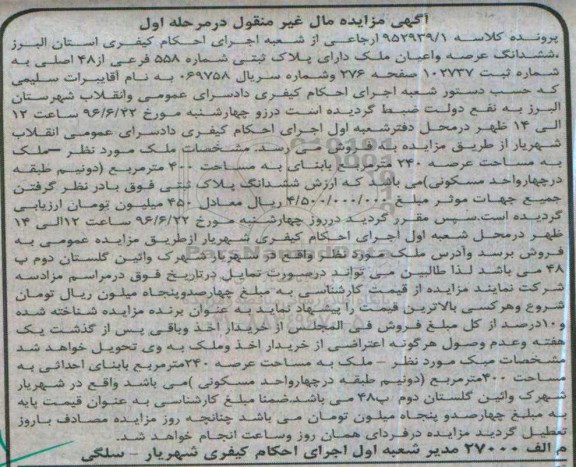 آگهی مزایده مال غیر منقول درمرحله اول
پرونده کلاسه ۹۵۲۹۳۹/۱ ارجاعی از شعبه اجرای احکام کیفری استان البرز
،ششدانگ عرصه واعیان ملک دارای پلاک ثبتی شماره ۵۵۸ فرعی از۴۸ اصلی به
شماره ثبت ۱۰۲۷۳۷ صفحه ۲۷۶ وشماره سریال ۰۶۹۷۵۸ به نام آقایبرات سلیمی
که حسب دستور شعبه اجرای احکام کیفری دادسرای عمومی وانقلاب شهرستان
البرز به نفع دولت ضبط گردیده است درزو چهارشنبه مورخ ۹۶/۶/۲۲ ساعت ۱۲
الی ۱۴ ظهر درمحل دفترشعبه اول اجرای احکام کیفری دادسرای عمومی انقلاب
شهریار از طریق مزایده به فروش می رسد. مشخصات ملک مورد نظر –ملک
به مساحت عرصه ۲۴۰ مترمربع بابنای به مساحت ۴۰۰ مترمربع (دونیم طبقه
درچهارواحد مسکونی)می باشد که ارزش ششدانگ پلاک ثبتی فوق بادر نظر گرفتن
جمیع جهات موثر مبلغ ۴/۵۰۰/۰۰۰/۰۰۰ ریال معادل ۴۵۰ میلیون تومان ارزیابی
گردیده است.سپس مقرر گردید درروز چهارشنبه مورخ ۹۶/۶/۲۲ ساعت ۱۲الی ۱۴
ظهر درمحل شعبه اول اجرای احکام کیفری شهریار ازطریق مزایده عمومی به
فروش برسد وآدرس ملک مورد نظر واقع در شهریارشهرک وائین گلستان دوم پ
۴۸ می باشد لذا طالبین می تواند درصورت تمایل درتاریخ فوق درمراسم مزادسه
شرکت نمایند مزایده از قیمت کارشناسی به مبلغ چهارصدوپنجاه میلون ریال تومان
شروع وهرکسی بالاترین قیمت را پیشنهاد نماید به عنوان برنده مزایده شناخته شده
و۱۰درصد از کل مبلغ فروش فی المجلس از خریدار اخذ وباقی پس از گذشت یک
هفته وعدم وصول هرگونه اعتراضی از خریدار اخذ وملک به وی تحویل خواهد شد
مشخصات مبک مورد نظر – ملک به مساحت عرصه ۲۴۰مترمربع بابنای احداثی به
مساحت ۴۰۰مترمربع (دونیم طبقه درچهارواحد مسکونی )می باشد واقع در شهریار
شهرک وائین گلستان دوم پ۴۸ می باشد.ضمنا مبلغ کارشناسی به عنوان قیمت پایه
به مبلغ چهارصدو پنجاه میلون تومان می باشد چنانچه روز مزایده مصادف باروز
تعطیل گردید مزایده درفردای همان روز وساعت انجام خواهد شد.
م الف ۲۷۰۰۰ مدیر شعبه اول اجرای احکام کیفری شهریار – سلگی